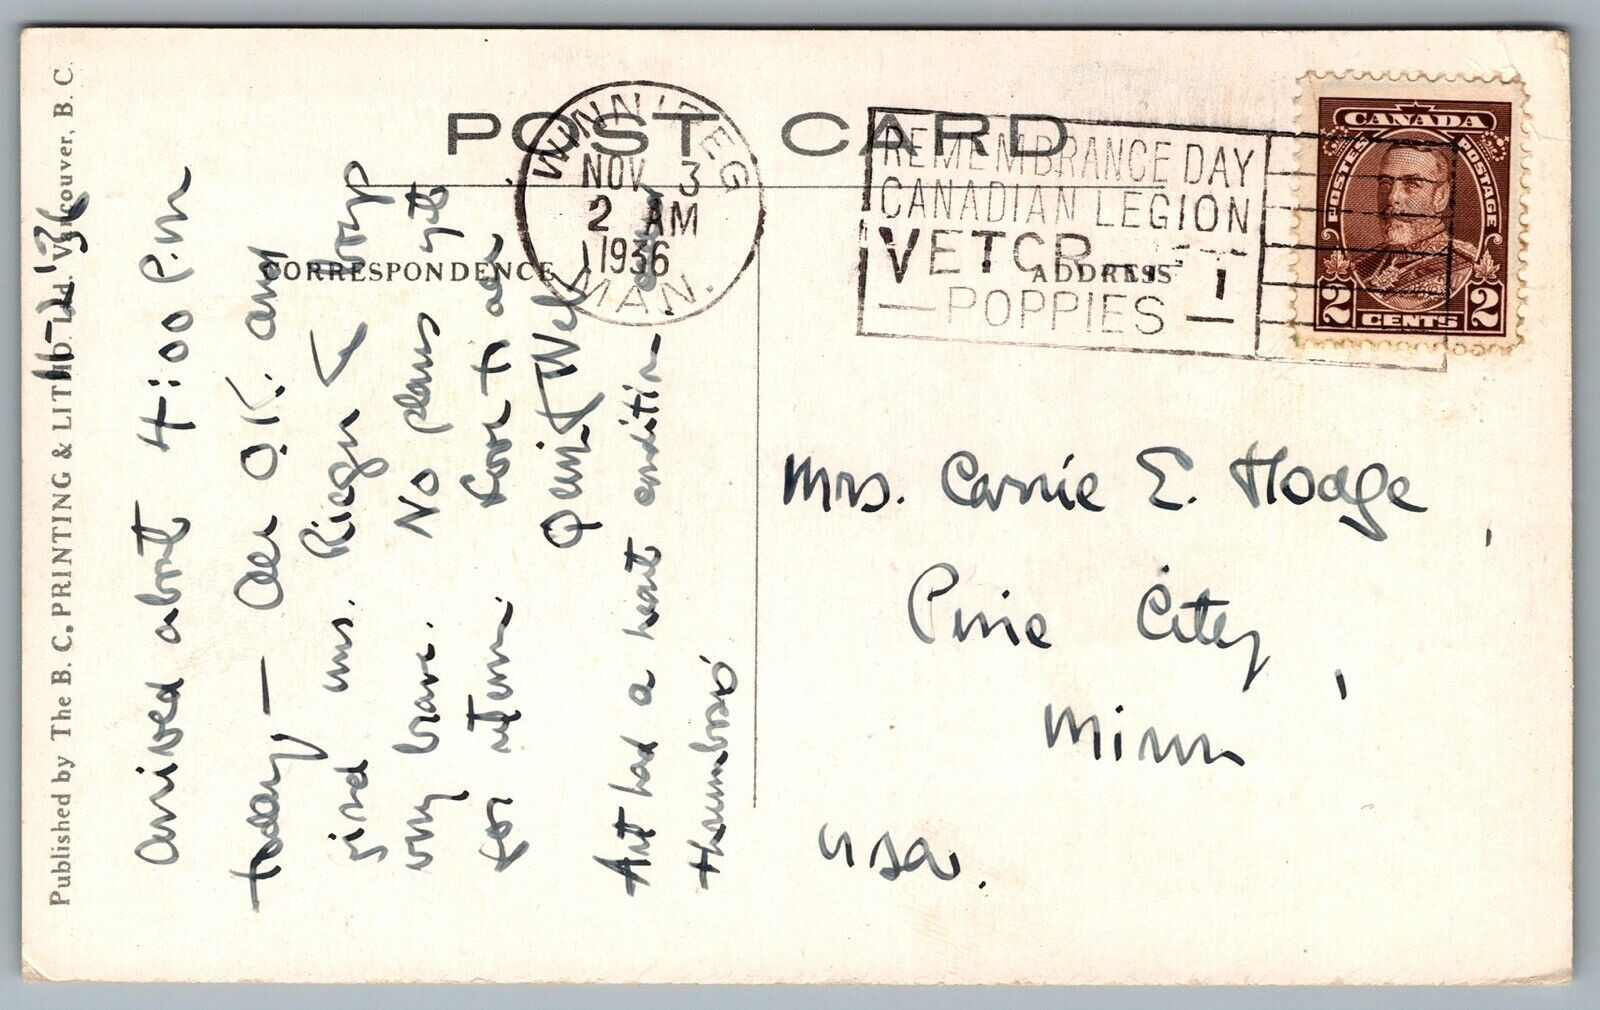 POST CARD
CORRESPONDENCE
ADDRESS
Published by The B. C. PRINTING & LITHO. Ltd. Vancouver, B. C.
WINNIPEG
NOV 3
2 AM
1936
MAN.
REMEMBRANCE DAY
CANADIAN LEGION
POPPIES
CANADA
POSTES POSTAGE
2 CENTS 2
11-2-'36
Arrived about 4:00 P.M
today — all O.K. and
find Mrs. & boys
very brave. No plans yet
for return. Love to all
Art had a heart condition and
thrombosis
Mrs. Carrie E. Hodge,
Pine City,
Minn
USA.